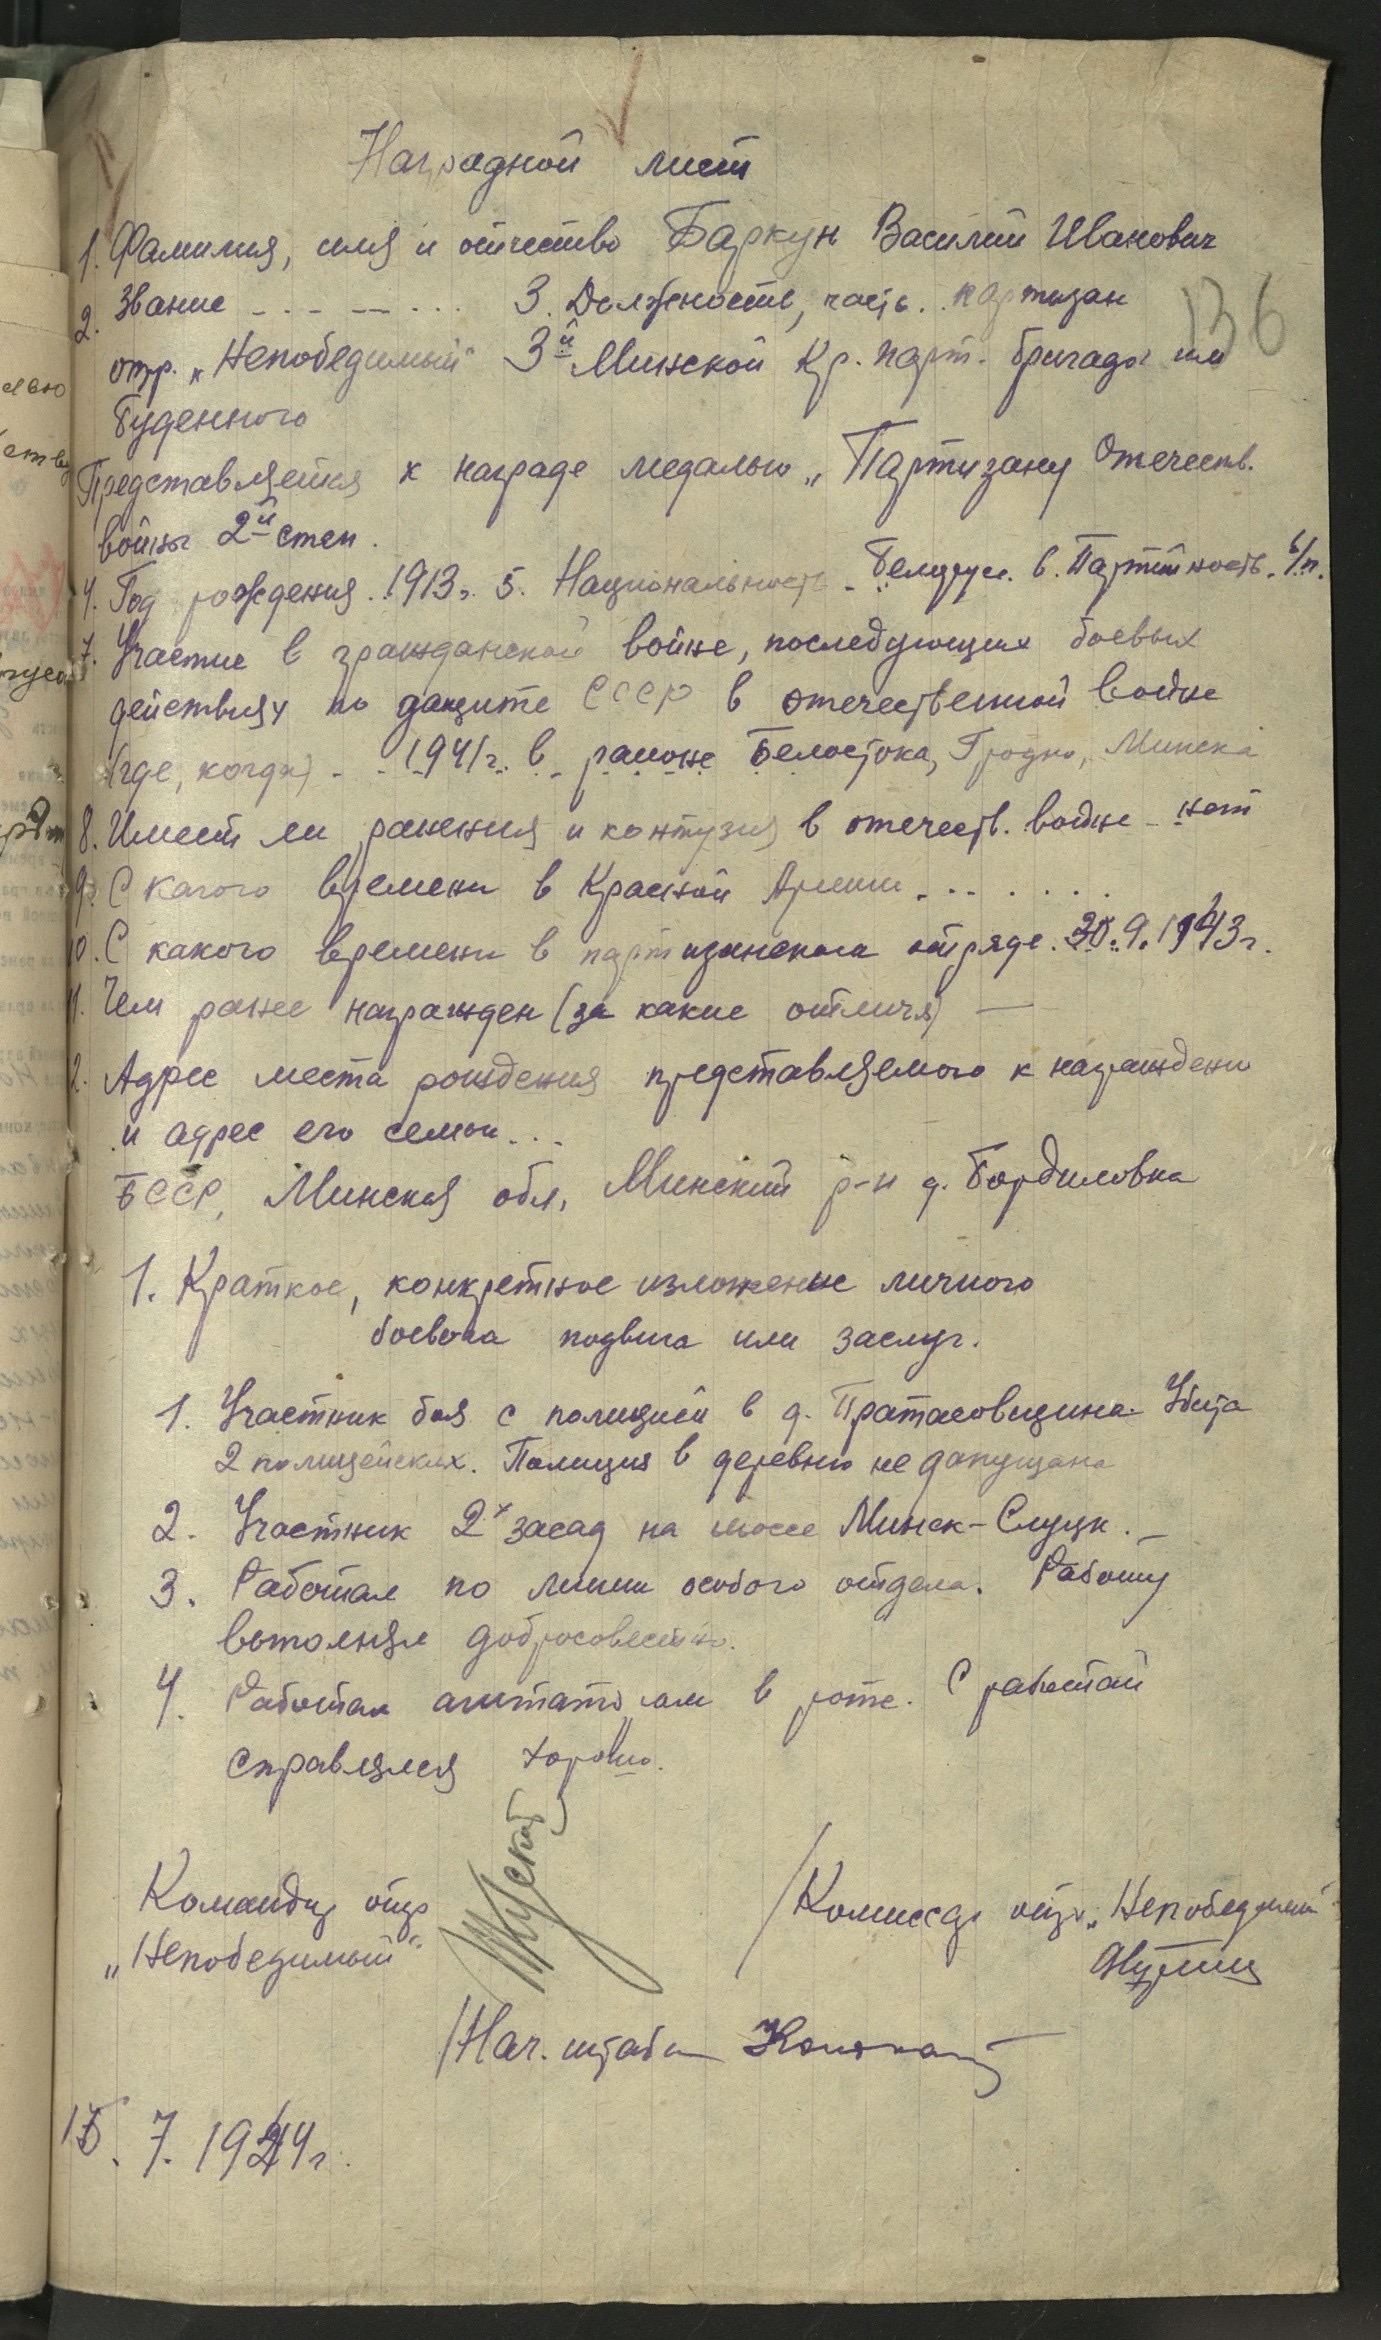 Наградной лист
1. Фамилия, имя и отчество Баркун Василий Иванович
2. Звание - . . - - - . . . 3. Должность, часть. . партизан
136
отр. „Непобедимый" 3й Минской Кр. парт. бригады им
Буденного
Представляется к награде медалью „Партизану Отечеств.
войны 2й степ.
4. Год рождения. 1913г. 5. Национальность - белорус. 6. Партийность. б/п.
7. Участие в гражданской войне, последующих боевых
действиях по защите СССР в отечественной войне
(где, когда) - . . 1941 г. в районе Белостока, Гродно, Минска
8. Имеет ли ранения и контузия в отечеств. войне - нет
9. С какого времени в Красной Армии . . . . . . .
10. С какого времени в партизанском отряде. 20.9.1943г.
11. Чем ранее награжден (за какие отличя) —
12. Адрес места рождения представляемого к награждени
и адрес его семьи . . .
БССР, Минская обл, Минский р-н д. Бордиловка
1. Краткое, конкретное изложение личного
боевого подвига или заслуг.
1. Участник боя с полицией в д. Пратасовщина. Убита
2 полицейских. Полиция в деревню не допущана
2. Участник 2х засад на шоссе Минск-Слуцк. -
3. Работал по линии особого отдела. Работу
выполнял добросовестно.
4. Работал агитатором в роте. С работай
справлялся хорошо.
Командир отр
„Непобедимый"
/Комиссар отр. „Непобедимый"
/Нач. штаба
15. 7. 1944г.